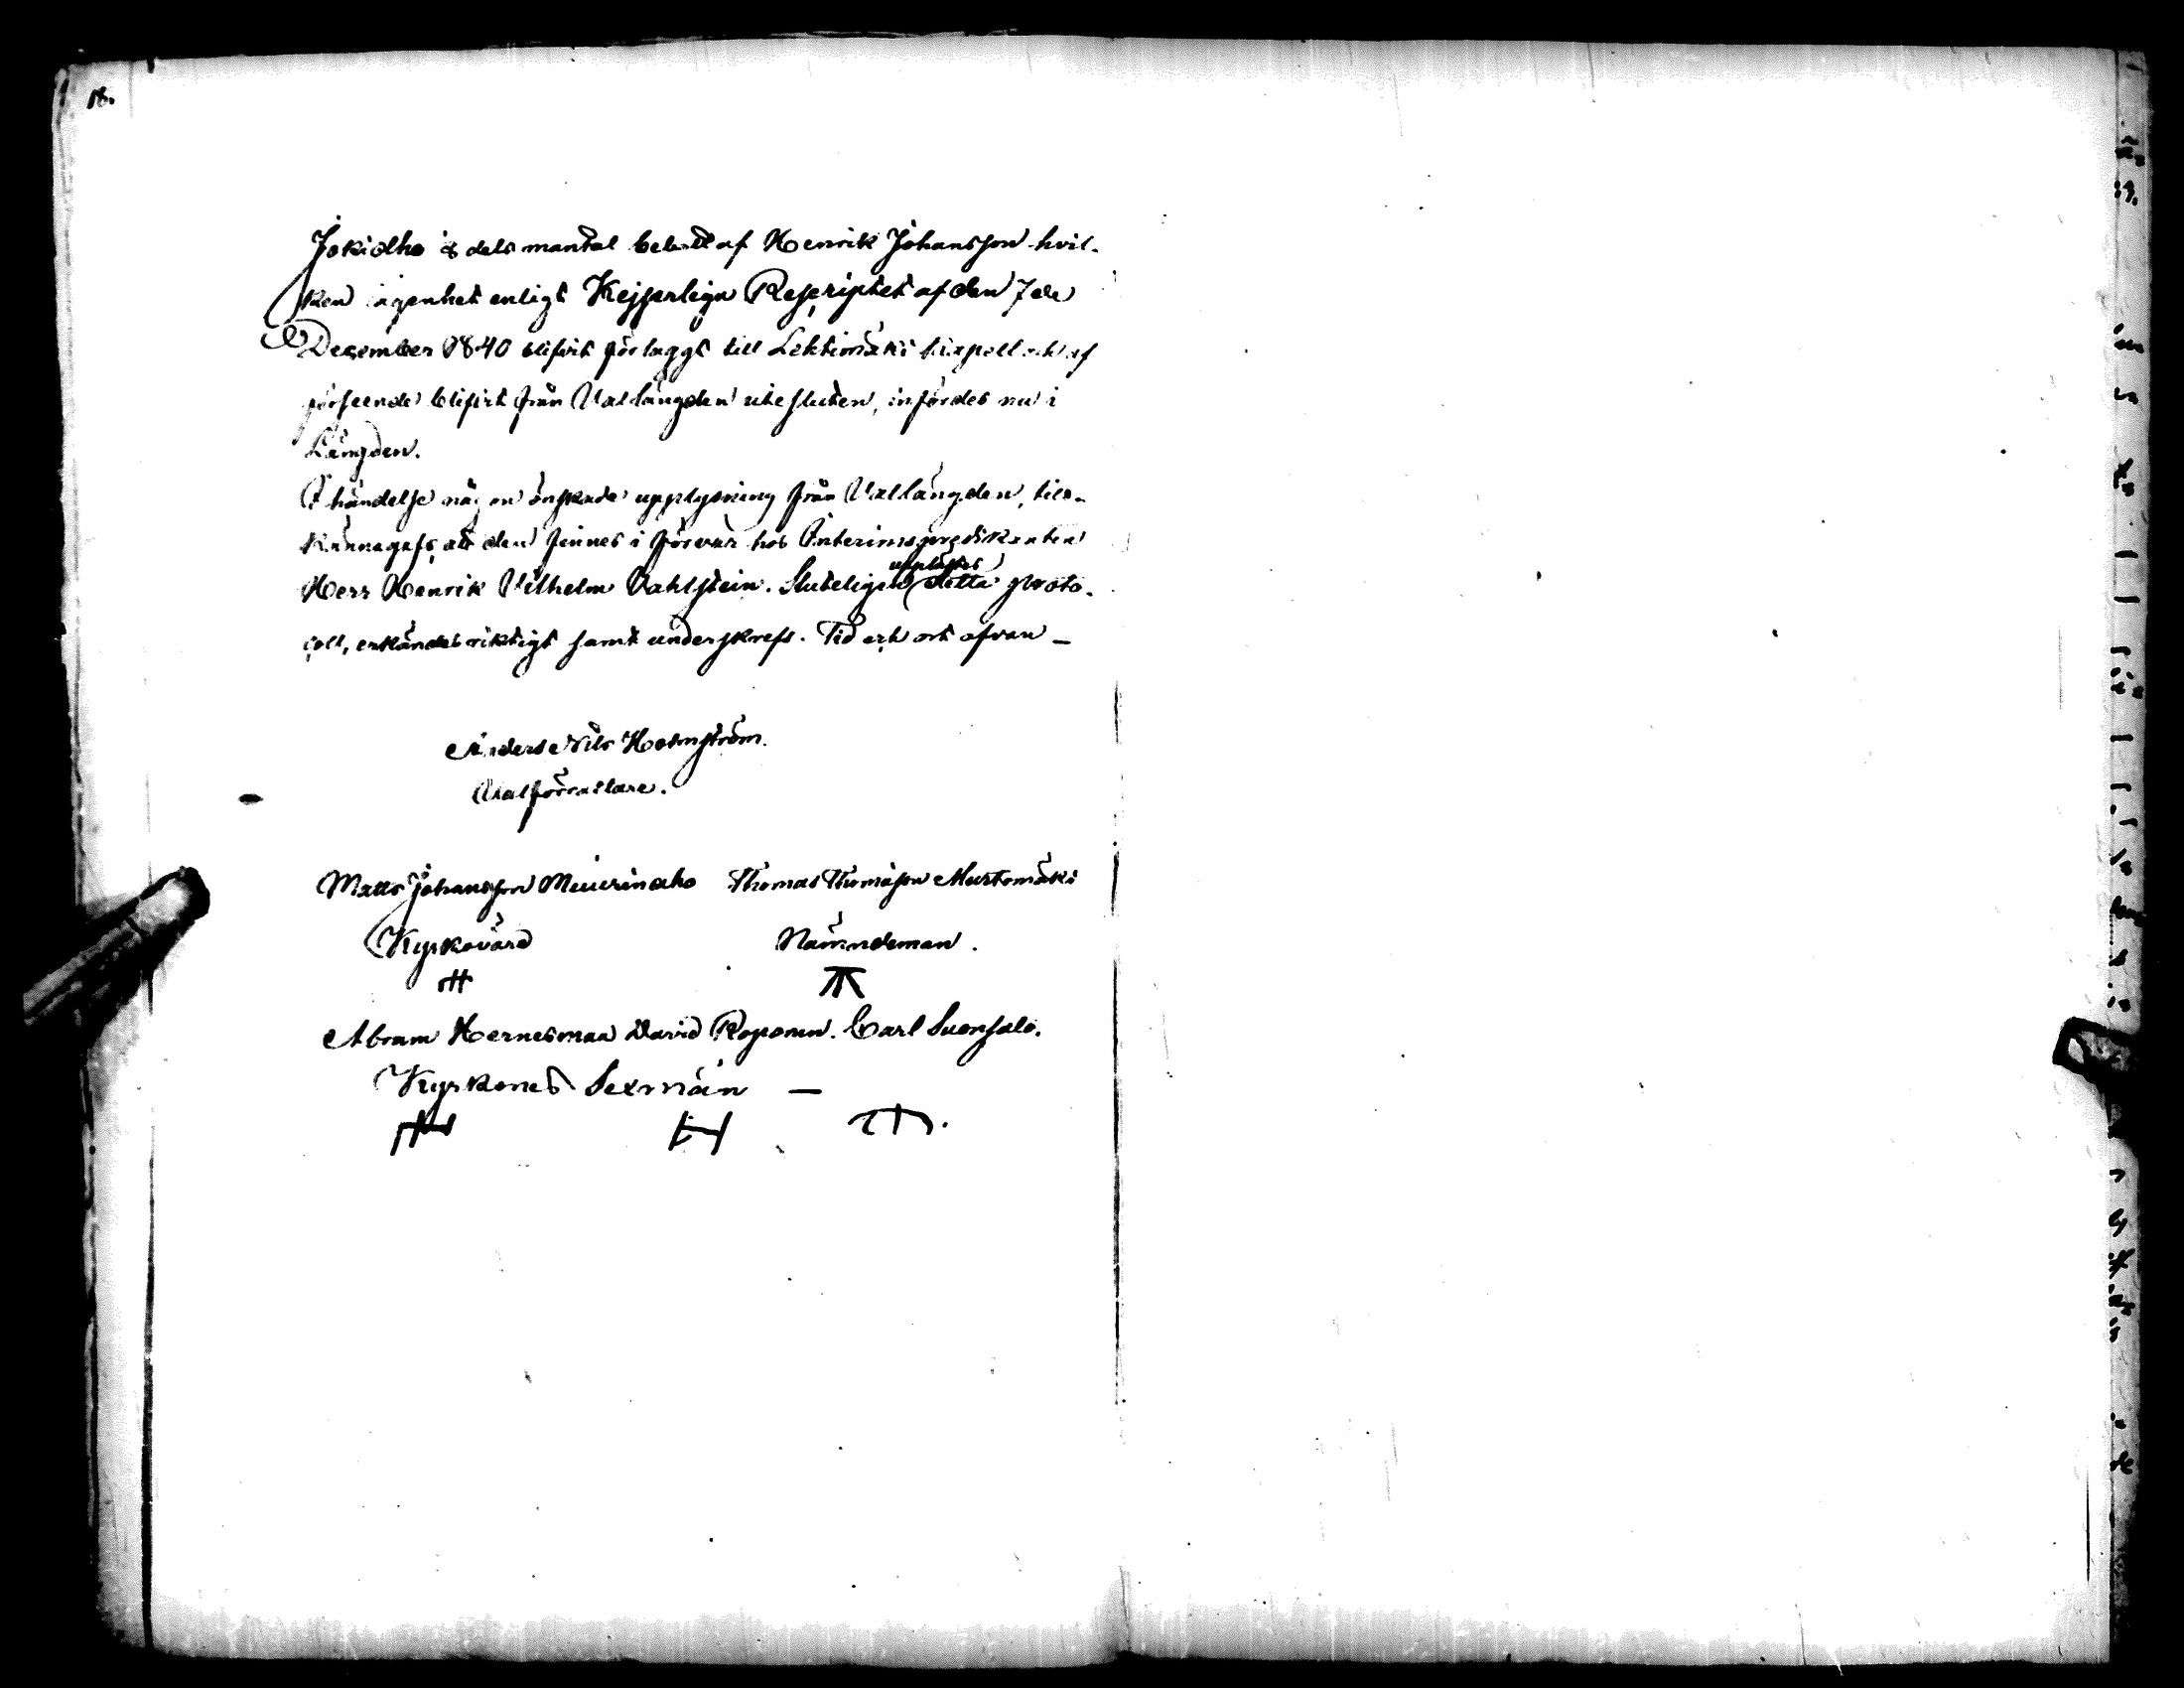 18.
Jokiaho ⅛ dels mantal bebodt af Henrik Johansson hvil-
ken lägenhet enligt Kejserliga Rescriptet af den 7de
December 1840 blifvit förlaggt till Lehtimäki kapell och af
förseende blifvit från Vallängden utesluten, infördes nu i
Längden.
I händelse någon önskade upplysning från Vallängden, till-
kännagafs, att den finnes i förvar hos Interimspredikanten
Herr Henrik Vilhelm Dahlstein. Sluteligen upplästes detta proto-
coll, erkändes riktigt samt underskrefs. Tid och ort ofvan —
Anders Nils Holmström.
Valförrättare.
Matts Johansson Meurinaho Thomas Thomasson Murtomäki
Kyrkovärd Nämndeman.
Abram Hernesmaa David Roponen. Carl Suensalo.
Kyrkones Sexmän —